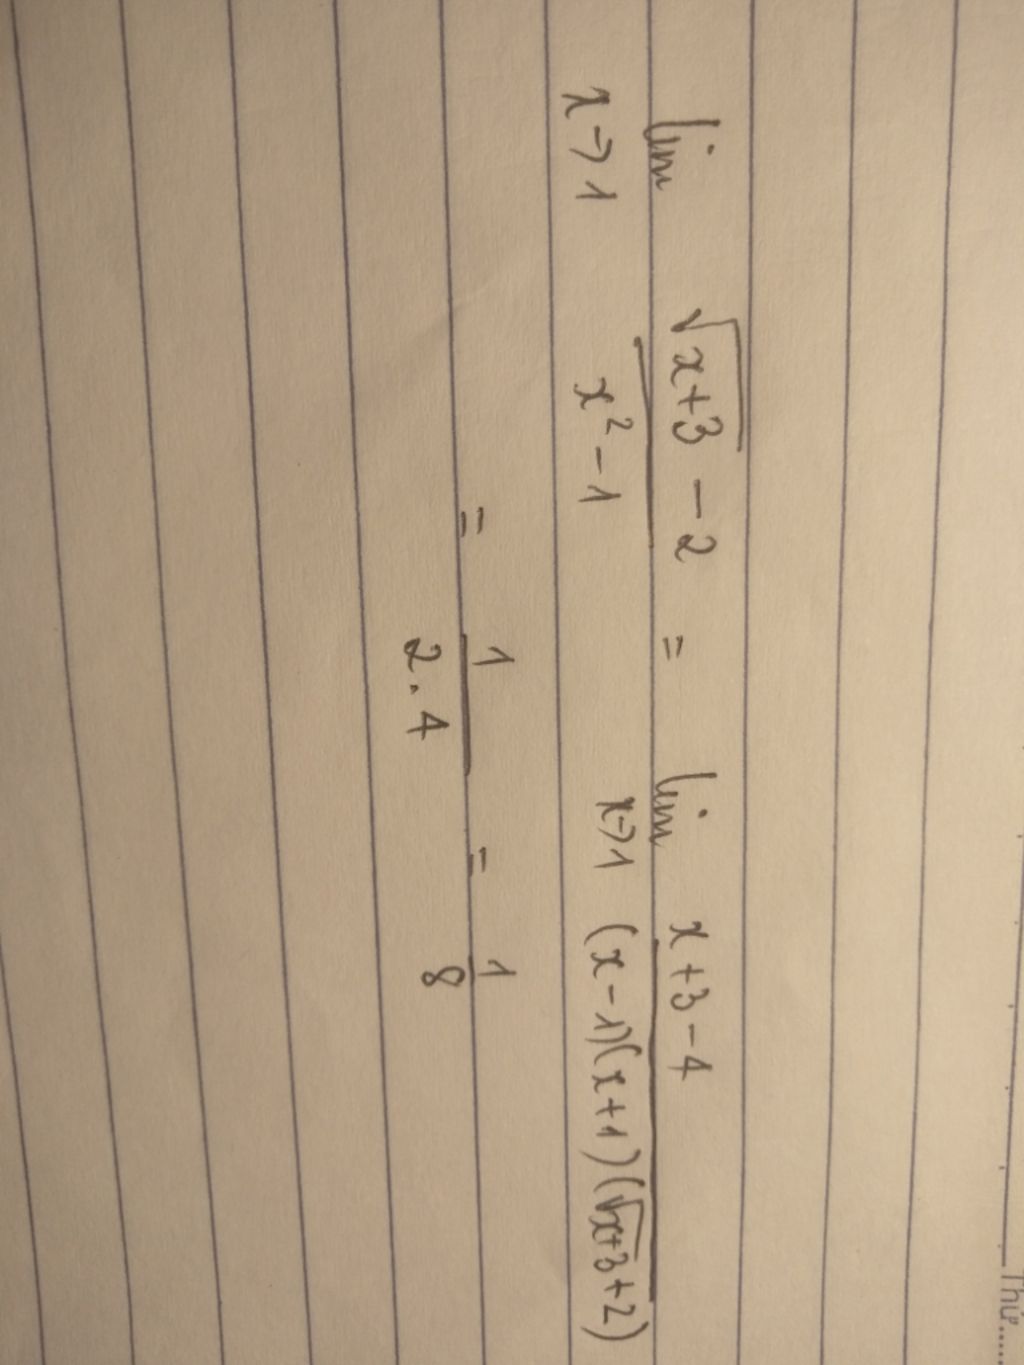 lim x→1 (√(x+3) - 2)/(x² - 1) = lim x→1 (x+3-4)/((x-1)(x+1)(√(x+3)+2))
= 1/(2.4) = 1/8
Thứ.....